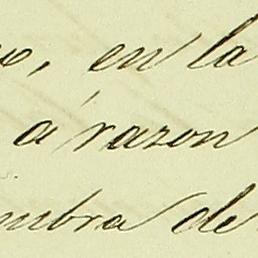 en la
á razon
mbra de